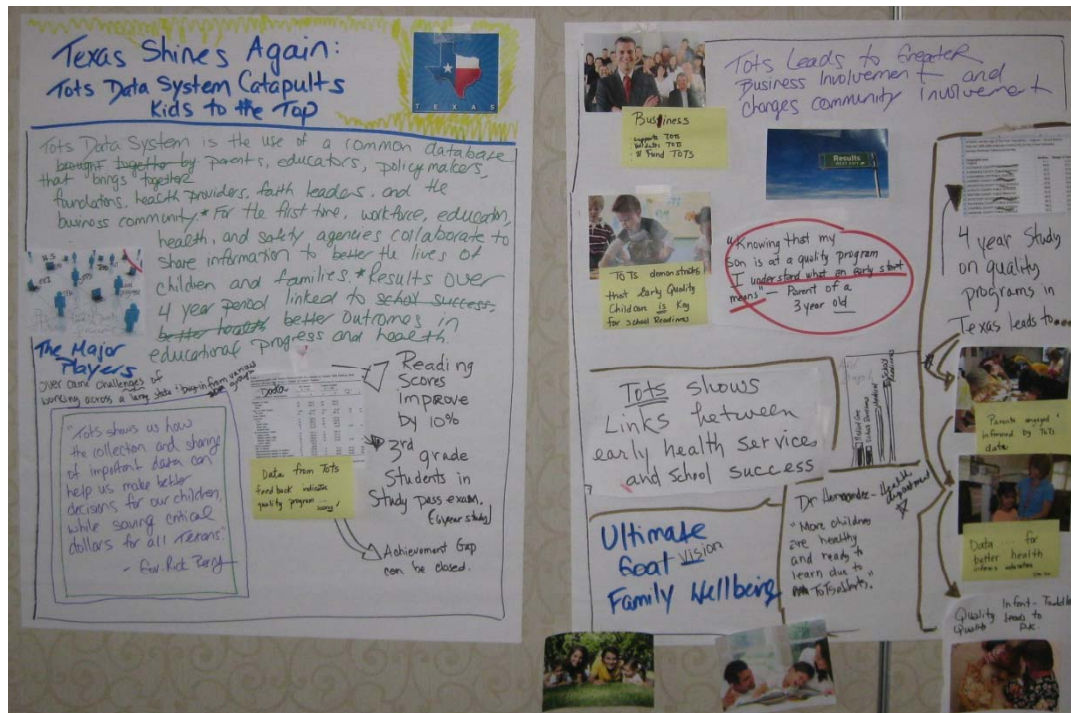 Texas Shines Again:
Tots Data System Catapults
Kids to the Top
TEXAS
Tots Data System is the use of a common database
brought together by parents, educators, policymakers,
that brings together
foundations, health providers, faith leaders, and the
business community. * For the first time, workforce, education,
health, and safety agencies collaborate to
share information to better the lives of
children and families. * Results over
4 year period linked to school success,
better health better outcomes in
educational progress and health.
The Major
Players
over came challenges of
working across a large state & buy in from various
groups
"Tots shows us how
the collection and sharing
of important data can
help us make better
decisions for our children,
while saving critical
dollars for all Texans."
- Gov. Rick Perry
Data
Data from Tots
feed back indicator
quality program
Reading
Scores
Improve
by 10%
3rd grade
Students in
Study pass exam,
Achievement Gap
can be closed.
Tots Leads to Greater
Business Involvement and
changes community involvement
Business
supports TOTs
TOTs
Fund TOTs
Results
NEXT EXIT
ToTs demonstrates
that Early Quality
Childcare is Key
for School Readiness
"Knowing that my
son is at a quality program
I understand what an early start
means" - Parent of a
3 year old
4 year Study
on quality
programs in
Texas leads to....
Tots shows
Links between
early health services
and School success
School
Readiness
Parents engaged &
informed by ToTs
data
Ultimate
Goal Vision
Family Wellbeing
Dr Hernandez - Health
department
"More children
are healthy
and ready to
learn due to
ToTs efforts."
Data for
better health
Quality Infant-Toddler
Quality leads to